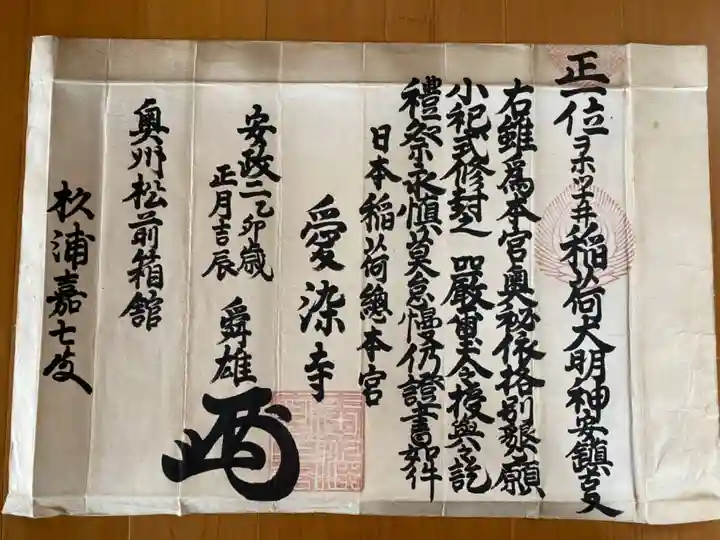 正一位ヲホツチ井稲荷大明神安鎮之事
右雖為本宮奥秘依格別懇願
小祀式修封之 厳璽令授與之訖
禮祭永慎莫怠慢仍證書如件
日本稲荷總本宮
愛染寺
安政二乙卯歳
正月吉辰
舜雄
奥州松前箱舘
松浦嘉七